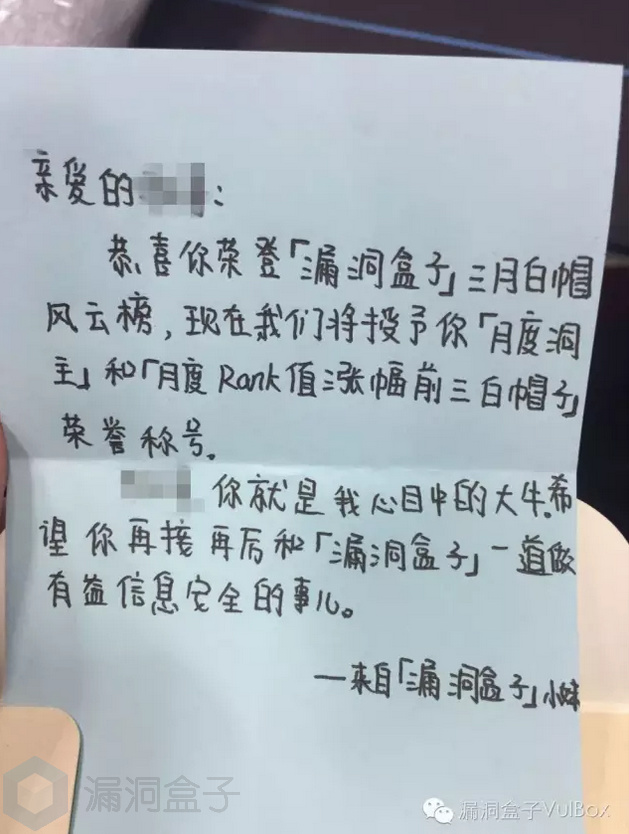 亲爱的 :
恭喜你荣登「漏洞盒子」三月白帽
风云榜，现在我们将授予你「月度洞
主」和「月度Rank值涨幅前三白帽子」
荣誉称号。
你就是我心目中的大牛。希
望你再接再厉和「漏洞盒子」一道做
有益信息安全的事儿。
—来自「漏洞盒子」小妹
漏洞盒子
漏洞盒子VulBox